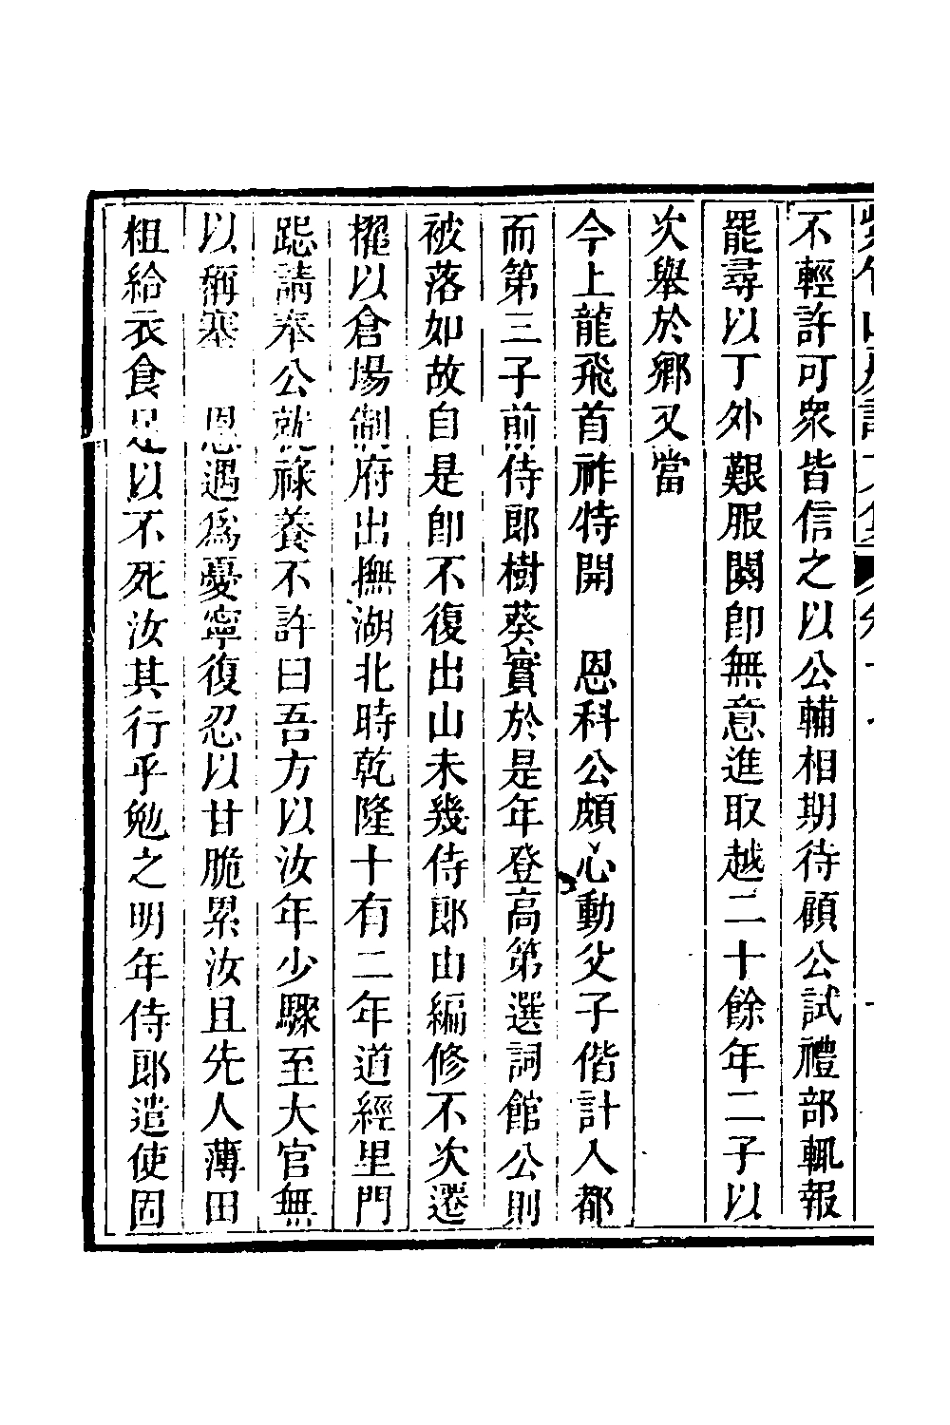 不輕許可衆皆信之以公輔相期待顧公試禮部輒報
罷尋以丁外艱服闋卽無意進取越二十餘年二子以
次舉於鄉又當
今上龍飛首祚特開　恩科公頗心動父子偕計入都
而第三子前侍郎樹葵實於是年登高第選詞館公則
被落如故自是卽不復出山未幾侍郎由編修不次遷
擢以倉場制府出撫湖北時乾隆十有二年道經里門
跽請奉公就祿養不許曰吾方以汝年少驟至大官無
以稱塞　恩遇爲憂寧復忍以甘脆累汝且先人薄田
粗給衣食足以不死汝其行乎勉之明年侍郎遣使固